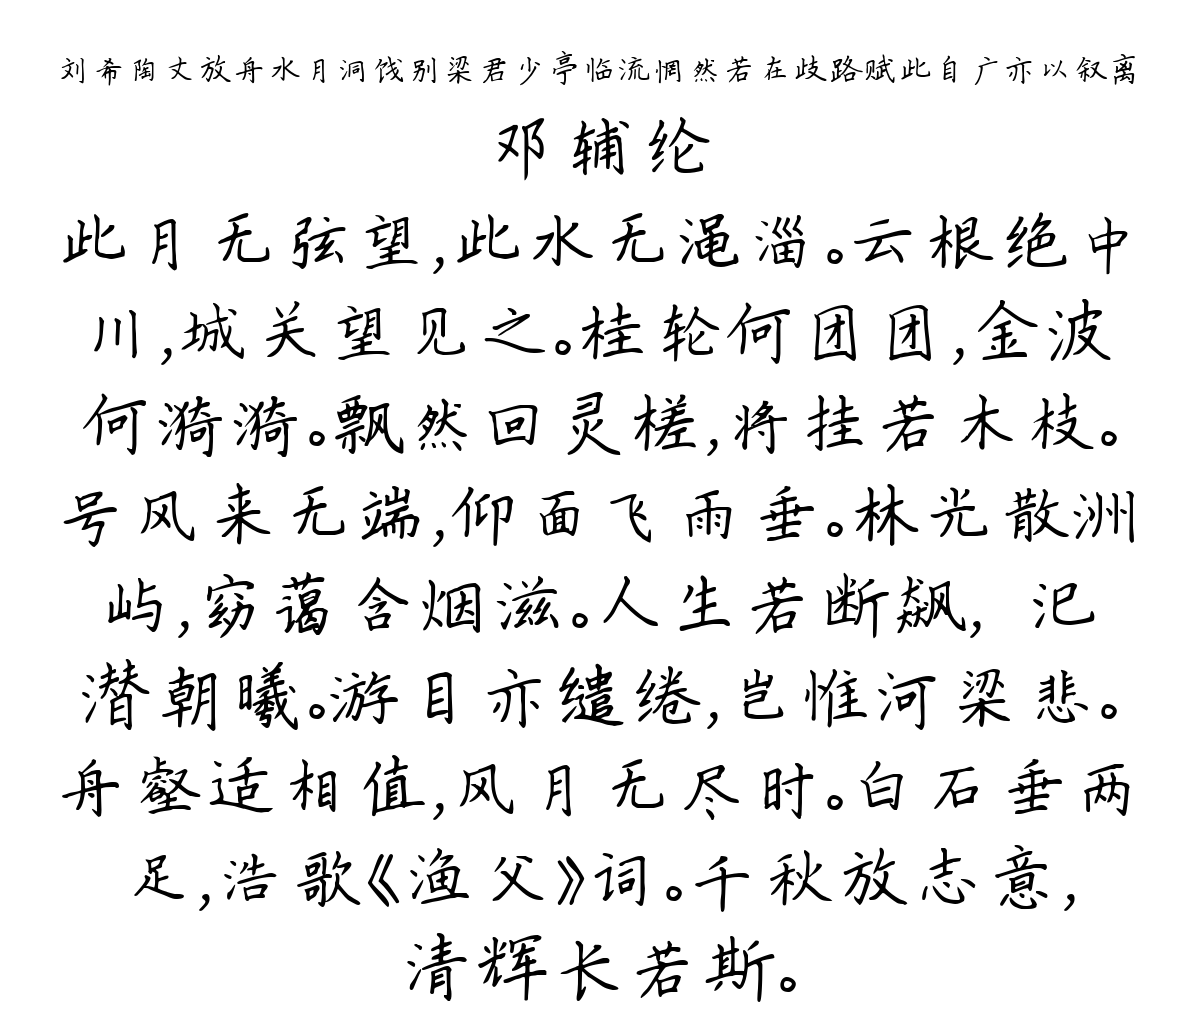 刘希陶丈放舟水月洞饯别梁君少亭临流惆然若在歧路赋此自广亦以叙离
邓辅纶
此月无弦望,此水无渑淄。云根绝中
川,城关望见之。桂轮何团团,金波
何漪漪。飘然回灵槎,将挂若木枝。
号风来无端,仰面飞雨垂。林光散洲
屿,窈蔼含烟滋。人生若断飙, 汜
潜朝曦。游目亦缱绻,岂惟河梁悲。
舟壑适相值,风月无尽时。白石垂两
足,浩歌《渔父》词。千秋放志意,
清辉长若斯。